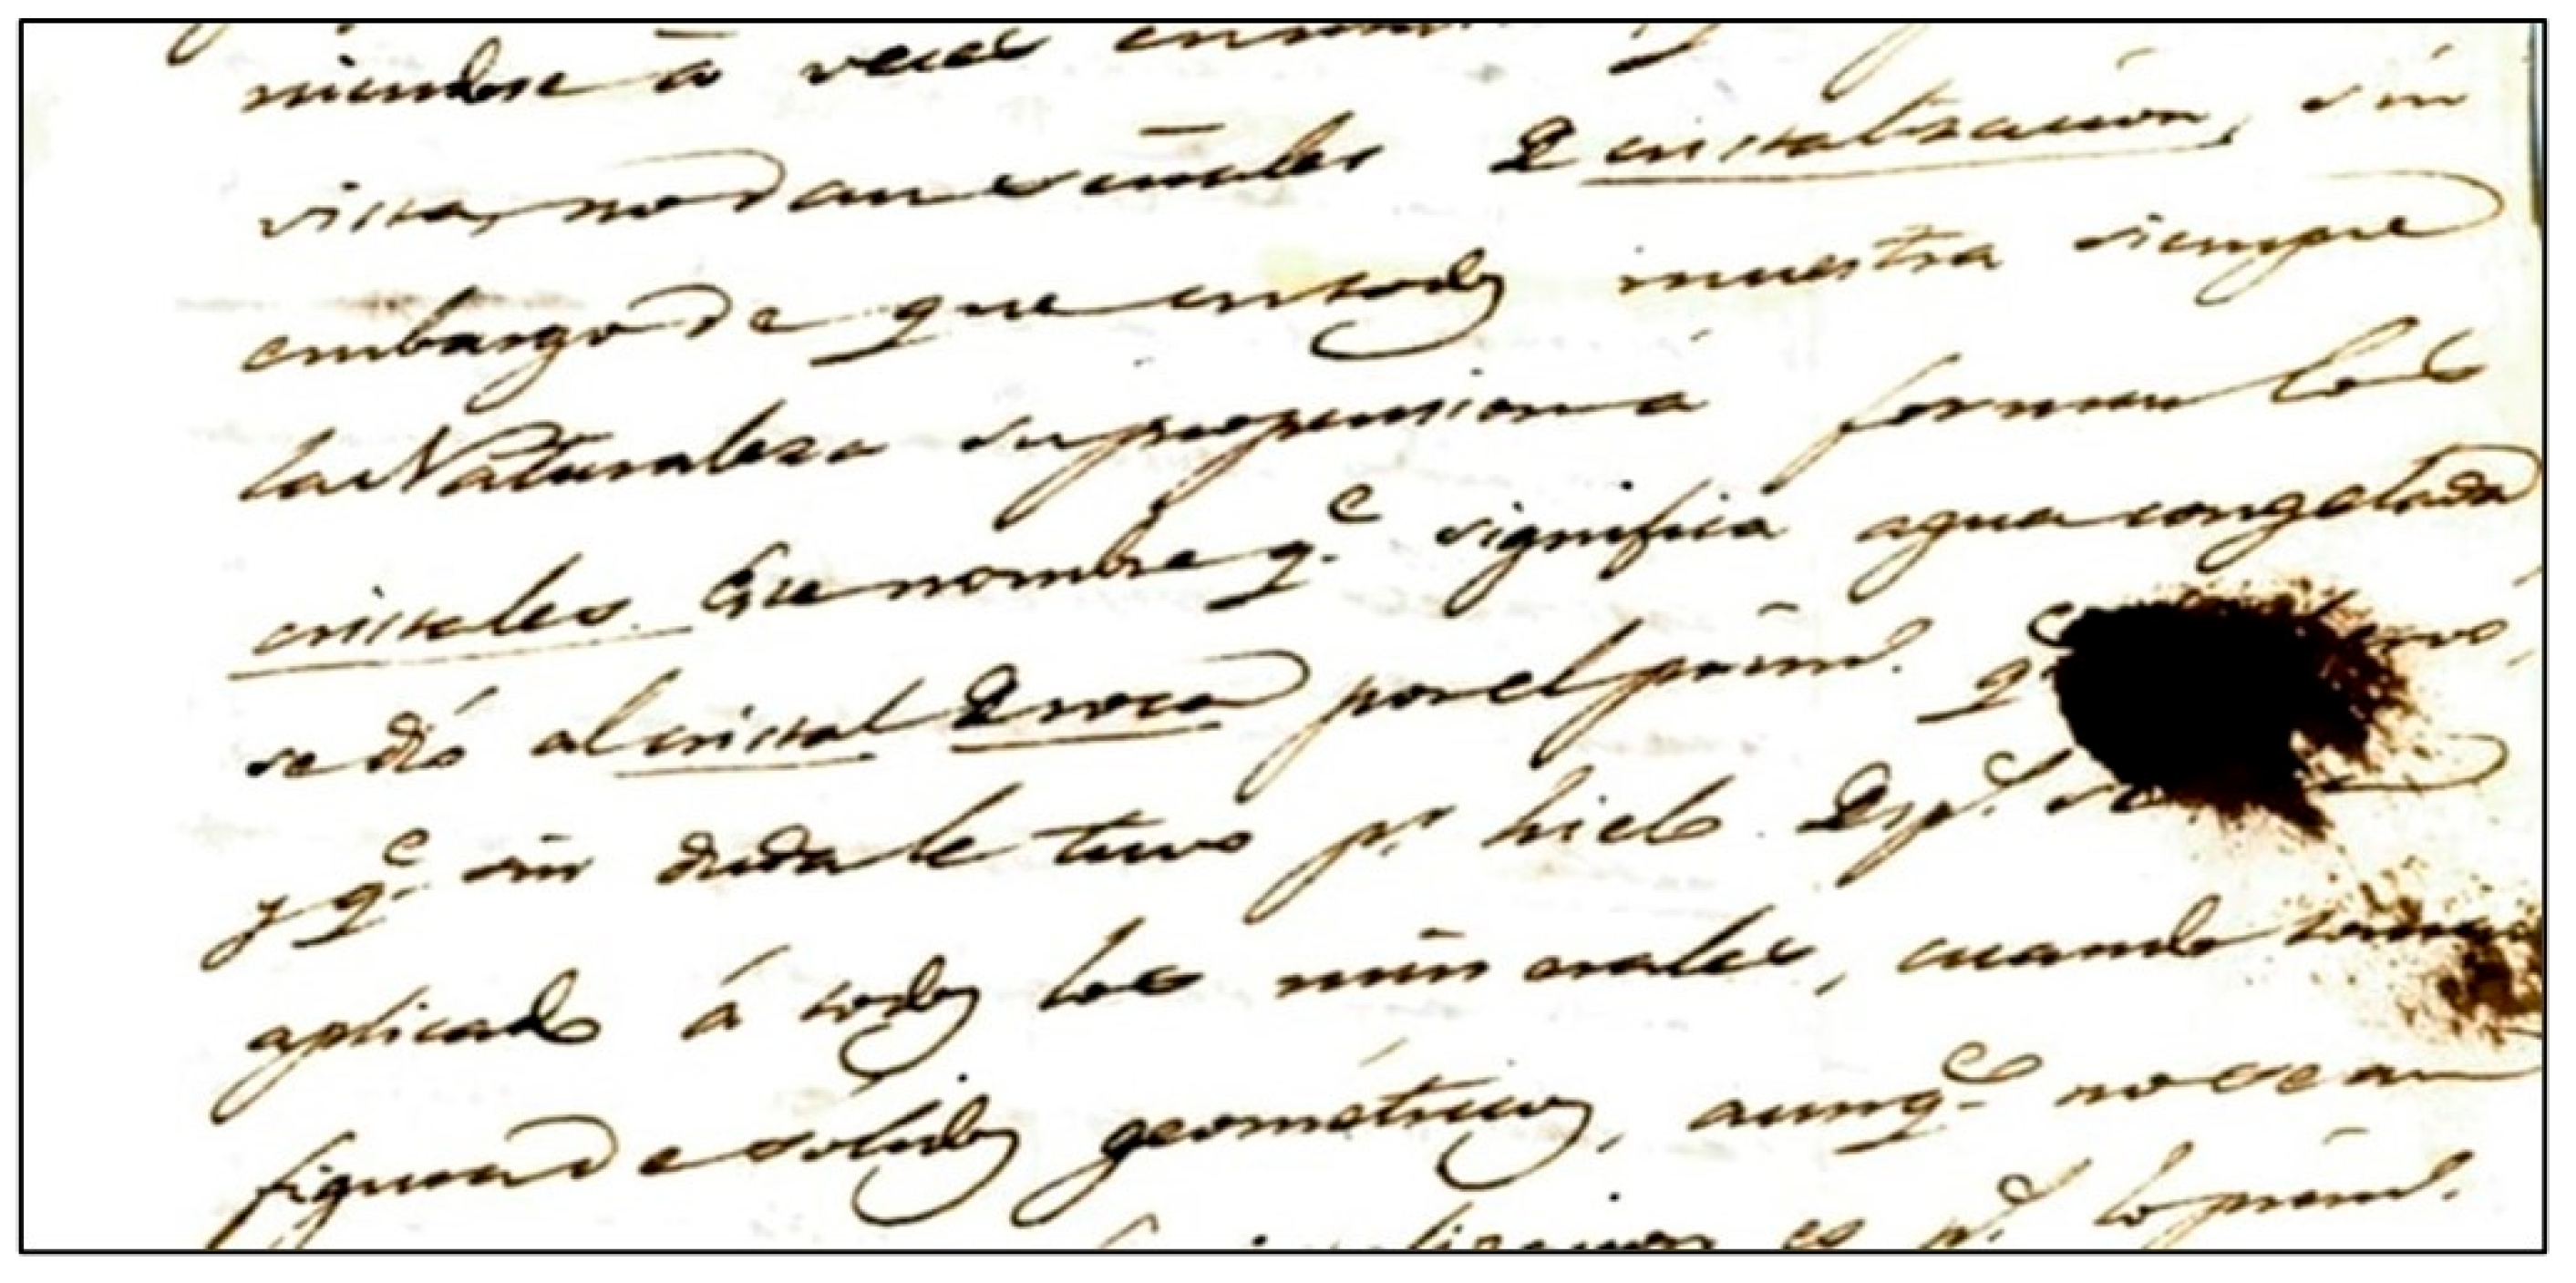 niendose à veces
vista, no dan señales D cristalizacion, sin
embargo de que en todos muestra siempre
la Naturaleza su propension á formar los
cristales. Este nombre q.e significa agua congelada
se dió al cristal D roca por el prim.
y q.e sin duda le tuvo p.r hielo. Dsp.s se
aplicado á todos los minerales, cuando
figura de solidos geométricos, aunq.e no sean
es p.r lo prim.